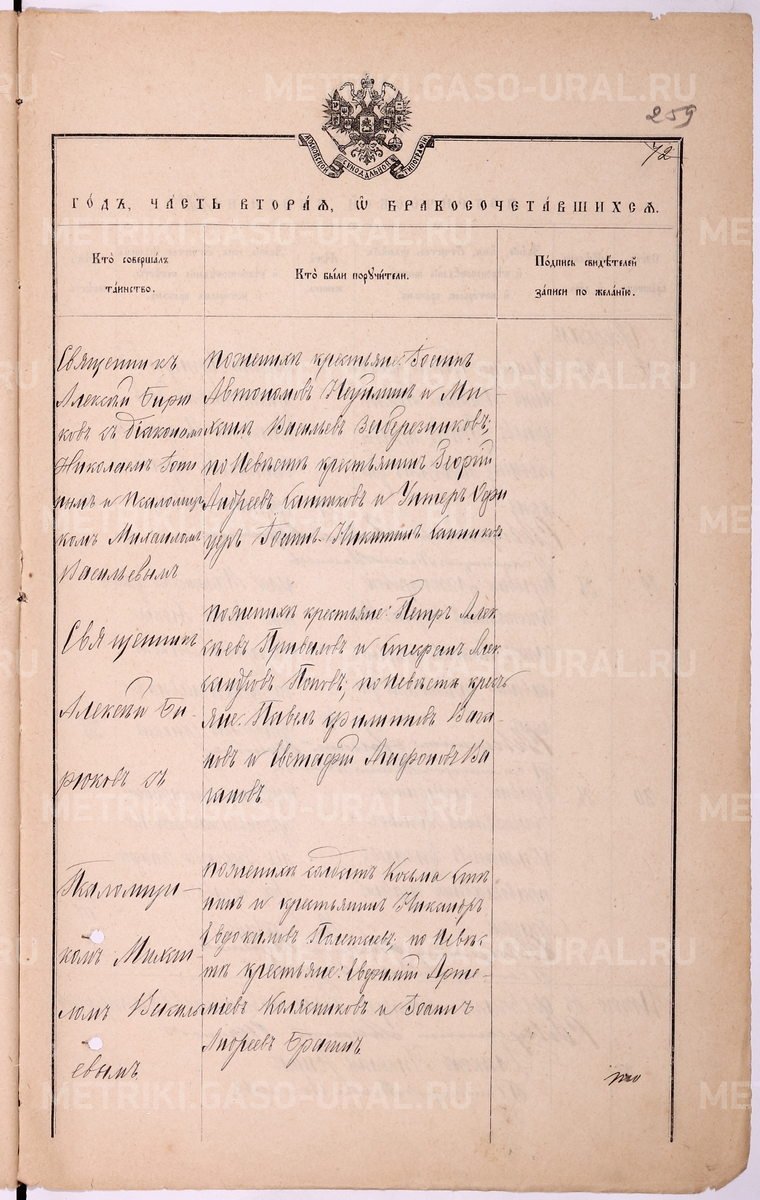 259
72
МОСКОВСКОЙ СѴНОДАЛЬНОЙ ТИПОГРАФІИ
ГО́ДЪ, ЧА́СТЬ ВТОРА́Я, Ѡ҆ БРАКОСОЧЕТА́ВШИХСЯ.
Кто̀ соверша́лъ
та́инство.
Кто̀ бы́ли поручи́тели.
По́дпись свидѣ́телей
за́писи по жела́нію.
Священникъ
Алексѣй Бирю
ковъ съ діакономъ
Николаемъ
нымъ и Псаломщи
комъ Михаиломъ
Васильевымъ
по женихѣ крестьяне: Іоаннъ
Автономовъ и Ми
хаилъ Васильевъ
по невѣстѣ крестьянинъ Георгій
Андреевъ Санниковъ и Унтеръ Офи
церъ Іоаннъ Никитинъ Санниковъ
Священникъ
Алексѣй Би-
рюковъ съ
по женихѣ крестьяне: Петръ Алек
сѣевъ и Стефанъ Алек
сандровъ Поповъ; по невѣстѣ кресть
яне: Павелъ Филипповъ Вага
новъ и Евстафій Агафоновъ Ва
гановъ
Псаломщи-
комъ Михаи-
ломъ Василь
евымъ
по женихѣ солдатъ Косьма
и крестьянинъ Никаноръ
Евдокимовъ по невѣс
тѣ крестьяне: Евфимій Арте-
міевъ Колясниковъ и Іоаннъ
Андреевъ Брагинъ
METRIKI.GASO-URAL.RU